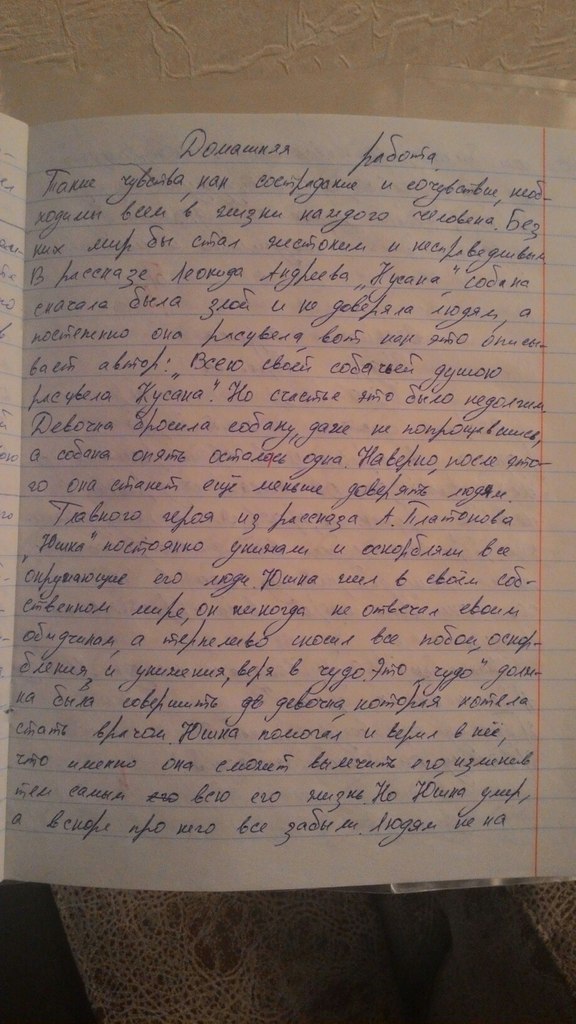 Домашняя работа.
Такие чувства, как сострадание и сочувствие, необ-
ходимы всем в жизни каждого человека. Без
них мир бы стал жестоким и несправедливым.
В рассказе Леонида Андреева „Кусака", собака
сначала была злой и не доверяла людям, а
постепенно она расцвела, вот как это описы-
вает автор: „Всею своей собачьей душою
расцвела Кусака". Но счастье это было недолгим.
Девочка бросила собаку, даже не попрощавшись,
а собака опять осталась одна. Наверно, после это-
го она станет ещё меньше доверять людям.
Главного героя из рассказа А. Платонова
„Юшка" постоянно унижали и оскорбляли все
окружающие его люди. Юшка жил в своём соб-
ственном мире, он никогда не отвечал своим
обидчикам, а терпеливо сносил все побои, оскор-
бления, и унижения, веря в чудо. Это „чудо" долж-
на была совершить дв девочка, которая хотела
стать врачом. Юшка помогал и верил в неё,
что именно она сможет вылечить его, изменив
тем самым его всю его жизнь. Но Юшка умер,
а вскоре про него все забыли. Людям не на